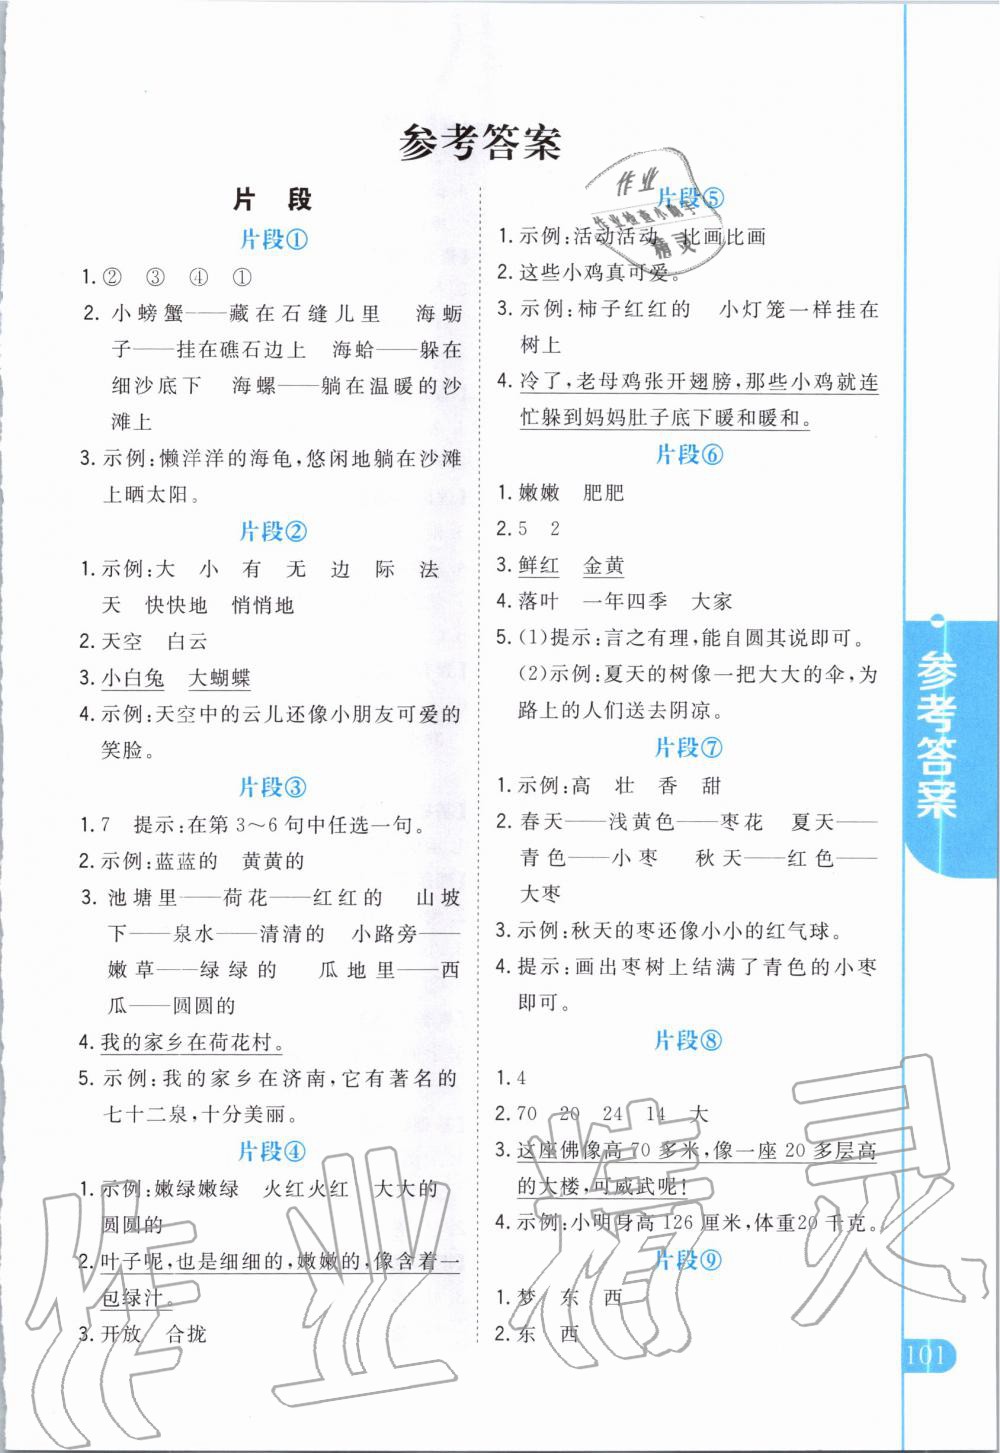 参考答案
片 段
片段①
1.② ③ ④ ①
2. 小螃蟹——藏在石缝儿里 海蛎
子——挂在礁石边上 海蛤——躲在
细沙底下 海螺——躺在温暖的沙
滩上
3. 示例:懒洋洋的海龟,悠闲地躺在沙滩
上晒太阳。
片段②
1. 示例:大 小 有 无 边 际 法
天 快快地 悄悄地
2. 天空 白云
3. 小白兔 大蝴蝶
4. 示例:天空中的云儿还像小朋友可爱的
笑脸。
片段③
1.7 提示:在第3~6句中任选一句。
2. 示例:蓝蓝的 黄黄的
3. 池塘里——荷花——红红的 山坡
下——泉水——清清的 小路旁——
嫩草——绿绿的 瓜地里——西
瓜——圆圆的
4. 我的家乡在荷花村。
5. 示例:我的家乡在济南,它有著名的
七十二泉,十分美丽。
片段④
1. 示例:嫩绿嫩绿 火红火红 大大的
圆圆的
2. 叶子呢,也是细细的,嫩嫩的,像含着一
包绿汁。
3. 开放 合拢
片段⑤
1. 示例:活动活动 比画比画
2. 这些小鸡真可爱。
3. 示例:柿子红红的 小灯笼一样挂在
树上
4. 冷了,老母鸡张开翅膀,那些小鸡就连
忙躲到妈妈肚子底下暖和暖和。
片段⑥
1. 嫩嫩 肥肥
2.5 2
3. 鲜红 金黄
4. 落叶 一年四季 大家
5. (1)提示:言之有理,能自圆其说即可。
(2)示例:夏天的树像一把大大的伞,为
路上的人们送去阴凉。
片段⑦
1. 示例:高 壮 香 甜
2. 春天——浅黄色——枣花 夏天——
青色——小枣 秋天——红色——
大枣
3. 示例:秋天的枣还像小小的红气球。
4. 提示:画出枣树上结满了青色的小枣
即可。
片段⑧
1.4
2.70 20 24 14 大
3. 这座佛像高70多米,像一座20多层高
的大楼,可威武呢!
4. 示例:小明身高126厘米,体重20千克。
片段⑨
1. 梦 东 西
2. 东 西
参考答案
101
作业
作业检查小助手
精灵
作业精灵